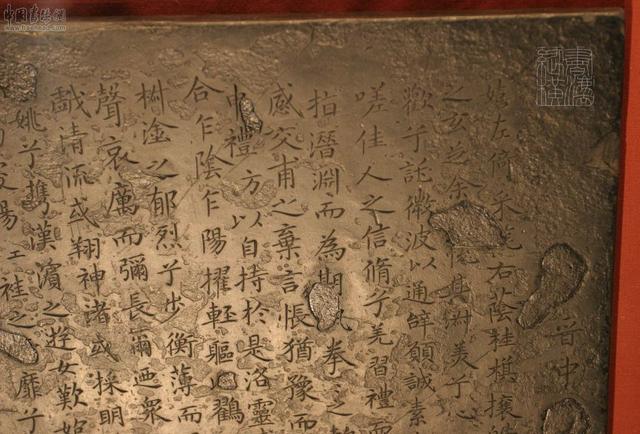 晉中
嬉左倚采旄右蔭桂旗攘
之玄芝余其淑美兮心
歡兮託微波以通辭願誠素
嗟佳人之信脩兮羌習禮而
指潛淵而為期執拳之
感交甫之棄言悵猶豫而
禮方以自持於是洛靈
合乍陰乍陽擢輕軀以鶴
椒塗之郁烈兮步衡薄而
聲哀厲而彌長爾迺衆
戲清流或翔神渚或採明
姚兮攜漢濱之游女歎
陽袿之靡兮
中国书法网